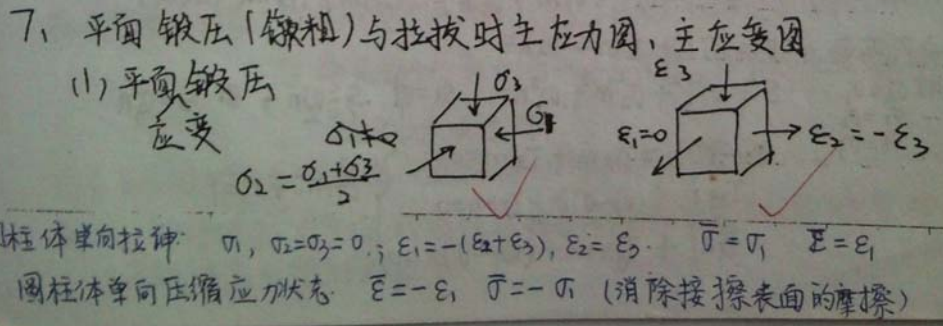 7、平面锻压(镦粗)与拉拔时主应力图、主应变图
(1) 平面锻压
应变
σ3
σ1
σ2 = (σ1+σ3)/2
ε3
ε1=0
ε2 = -ε3
柱体单向拉伸: σ1, σ2=σ3=0.; ε1=-(ε2+ε3), ε2=ε3. σ̅=σ1 ε̅=ε1
圆柱体单向压缩应力状态. ε̅=-ε1 σ̅=-σ1 (消除接擦表面的摩擦)